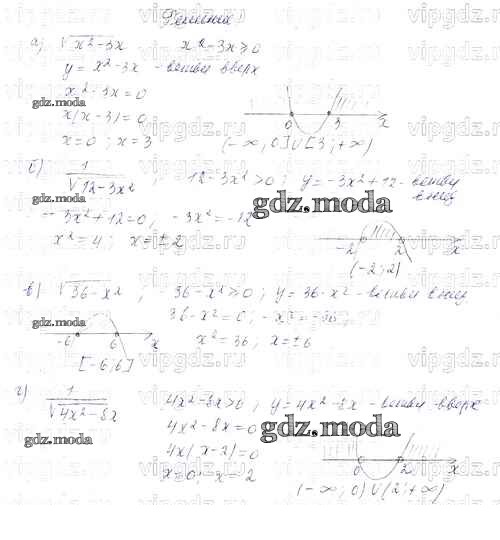 Решение
а) √x²-3x x²-3x≥0
y = x²-3x - ветви вверх
x²-3x=0
x(x-3)=0
x=0; x=3
0 3 x
(-∞; 0]∪[3; +∞)
б) 1/√12-3x² , 12-3x²>0; y=-3x²+12- ветви вниз
-3x²+12=0, -3x²=-12
x²=4; x=±2
-2 2 x
(-2; 2)
в) √36-x² ; 36-x²≥0; y=36-x² - ветви вниз
36-x²=0; -x²=-36;
x²=36; x=±6
-6 6 x
[-6;6]
г) 1/√4x²-8x 4x²-8x>0; y=4x²-8x - ветви вверх
4x²-8x=0
4x(x-2)=0
x=0; x=2
0 2 x
(-∞; 0)∪(2; +∞)
gdz.moda
gdz.moda
gdz.moda
gdz.moda
gdz.moda
vipgdz.ru